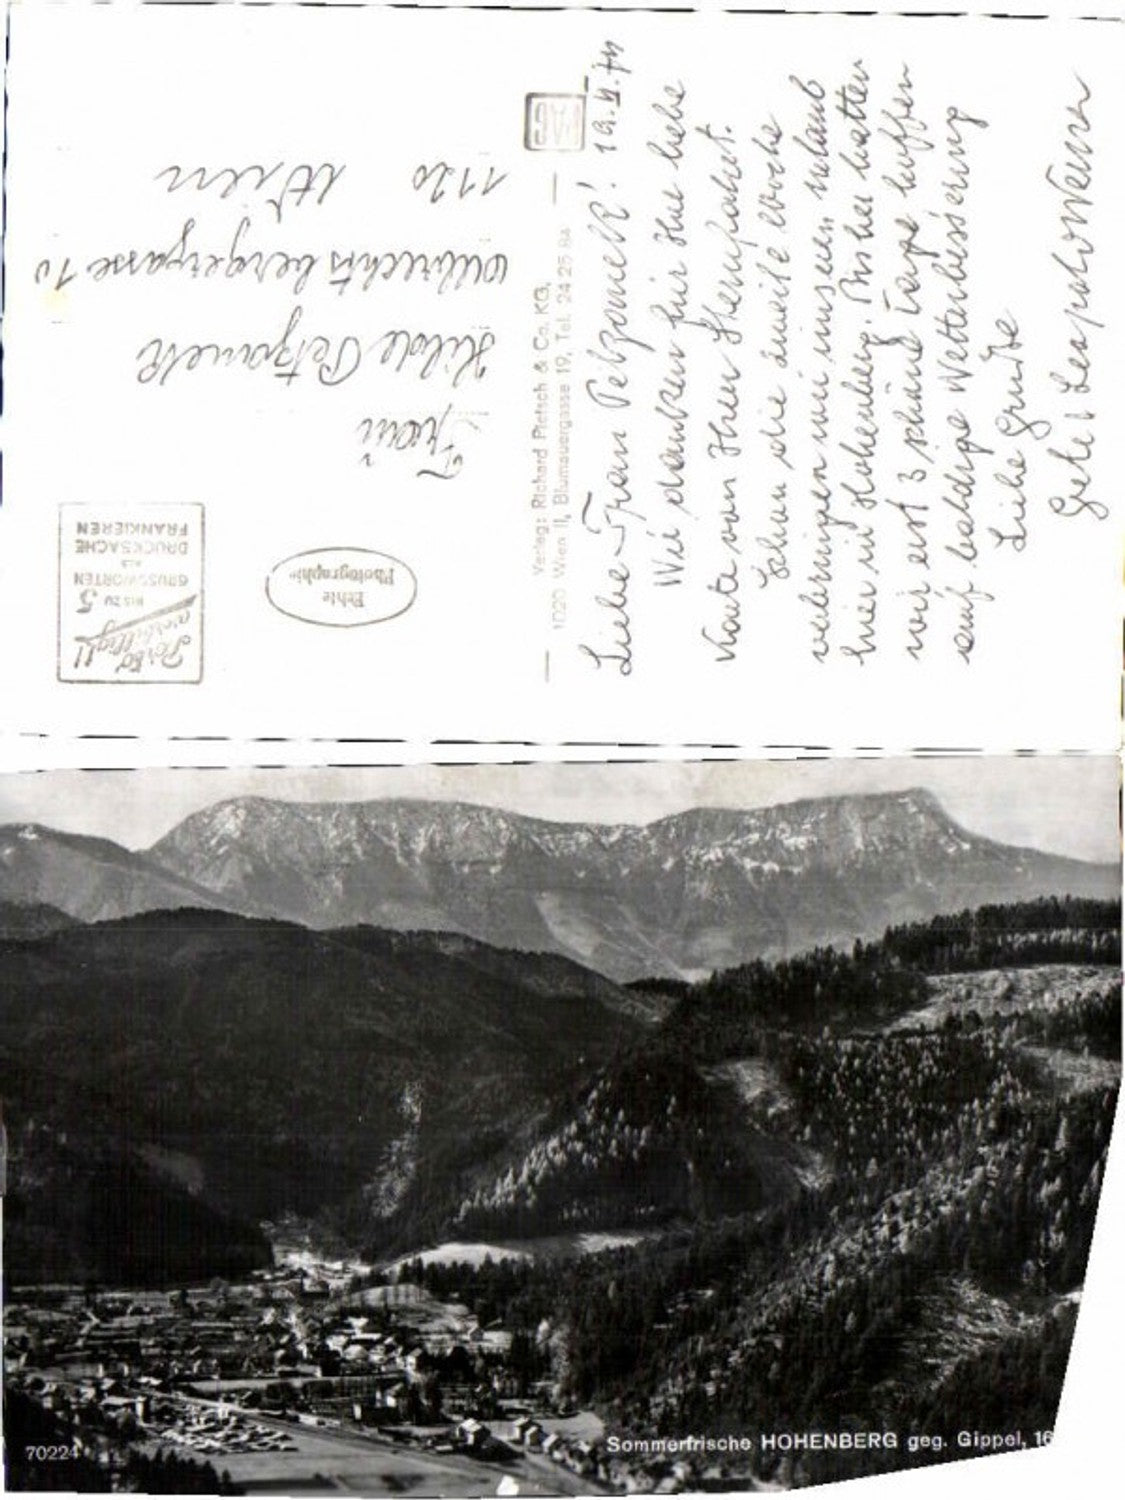 Liebe Frau Petzonell! 19.9.74
Wir danken für Ihre liebe
Karte von Ihrer Sternfahrt.
Schon die zweite Woche
verbringen wir unseren Urlaub
hier in Hohenberg. Bisher hatten
wir erst 3 schöne Tage hoffen
auf baldige Wetterbesserung
Liebe Grüße
Grete &
Verlag: Richard Pietsch & Co. KG.
1020 Wien II, Blumauergasse 19, Tel. 24 25 84
Porto
verbilligt
BIS ZU 5
GRUSSWORTEN
ALS
DRUCKSACHE
FRANKIEREN
Echte
Photographie
Frau
Hilde Petzonell
10
1120 Wien
70224
Sommerfrische HOHENBERG geg. Gippel, 16